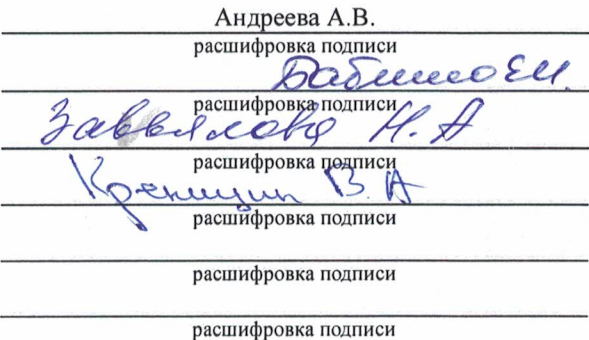 Андреева А.В.
расшифровка подписи
Е.И.
расшифровка подписи
Завьялова Н.А
расшифровка подписи
Креницин В.А
расшифровка подписи
расшифровка подписи
расшифровка подписи